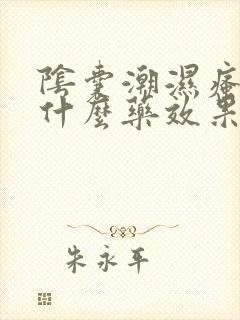 陰囊潮濕瘙
什麼藥效果
朱永平